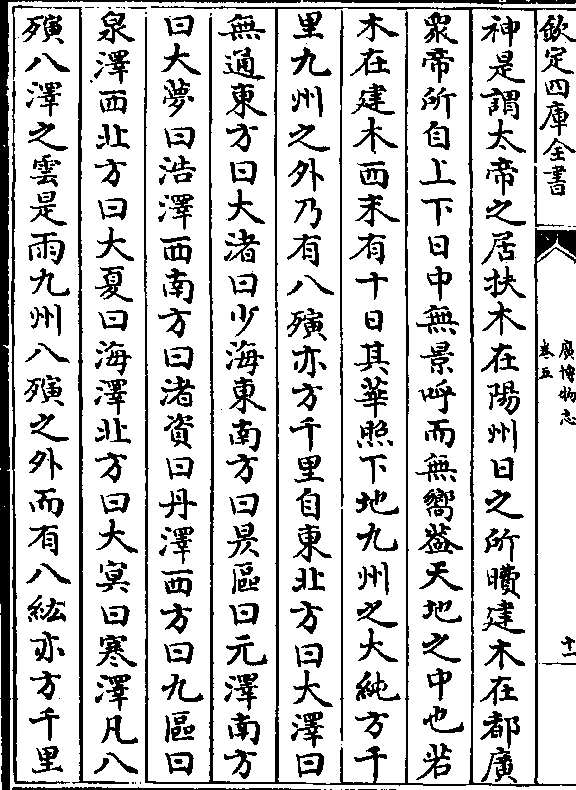 欽定四庫全書
廣博物志
卷五
十一
神是謂太帝之居扶木在陽州日之所曊建木在都廣
衆帝所自上下日中無景呼而無嚮葢天地之中也若
木在建木西末有十日其華照下地九州之大純方千
里九州之外乃有八殥亦方千里自東北方曰大澤曰
無通東方曰大渚曰少海東南方曰具區曰元澤南方
曰大夢曰浩澤西南方曰渚資曰丹澤西方曰九區曰
泉澤西北方曰大夏曰海澤北方曰大冥曰寒澤凡八
殥八澤之雲是雨九州八殥之外而有八紘亦方千里